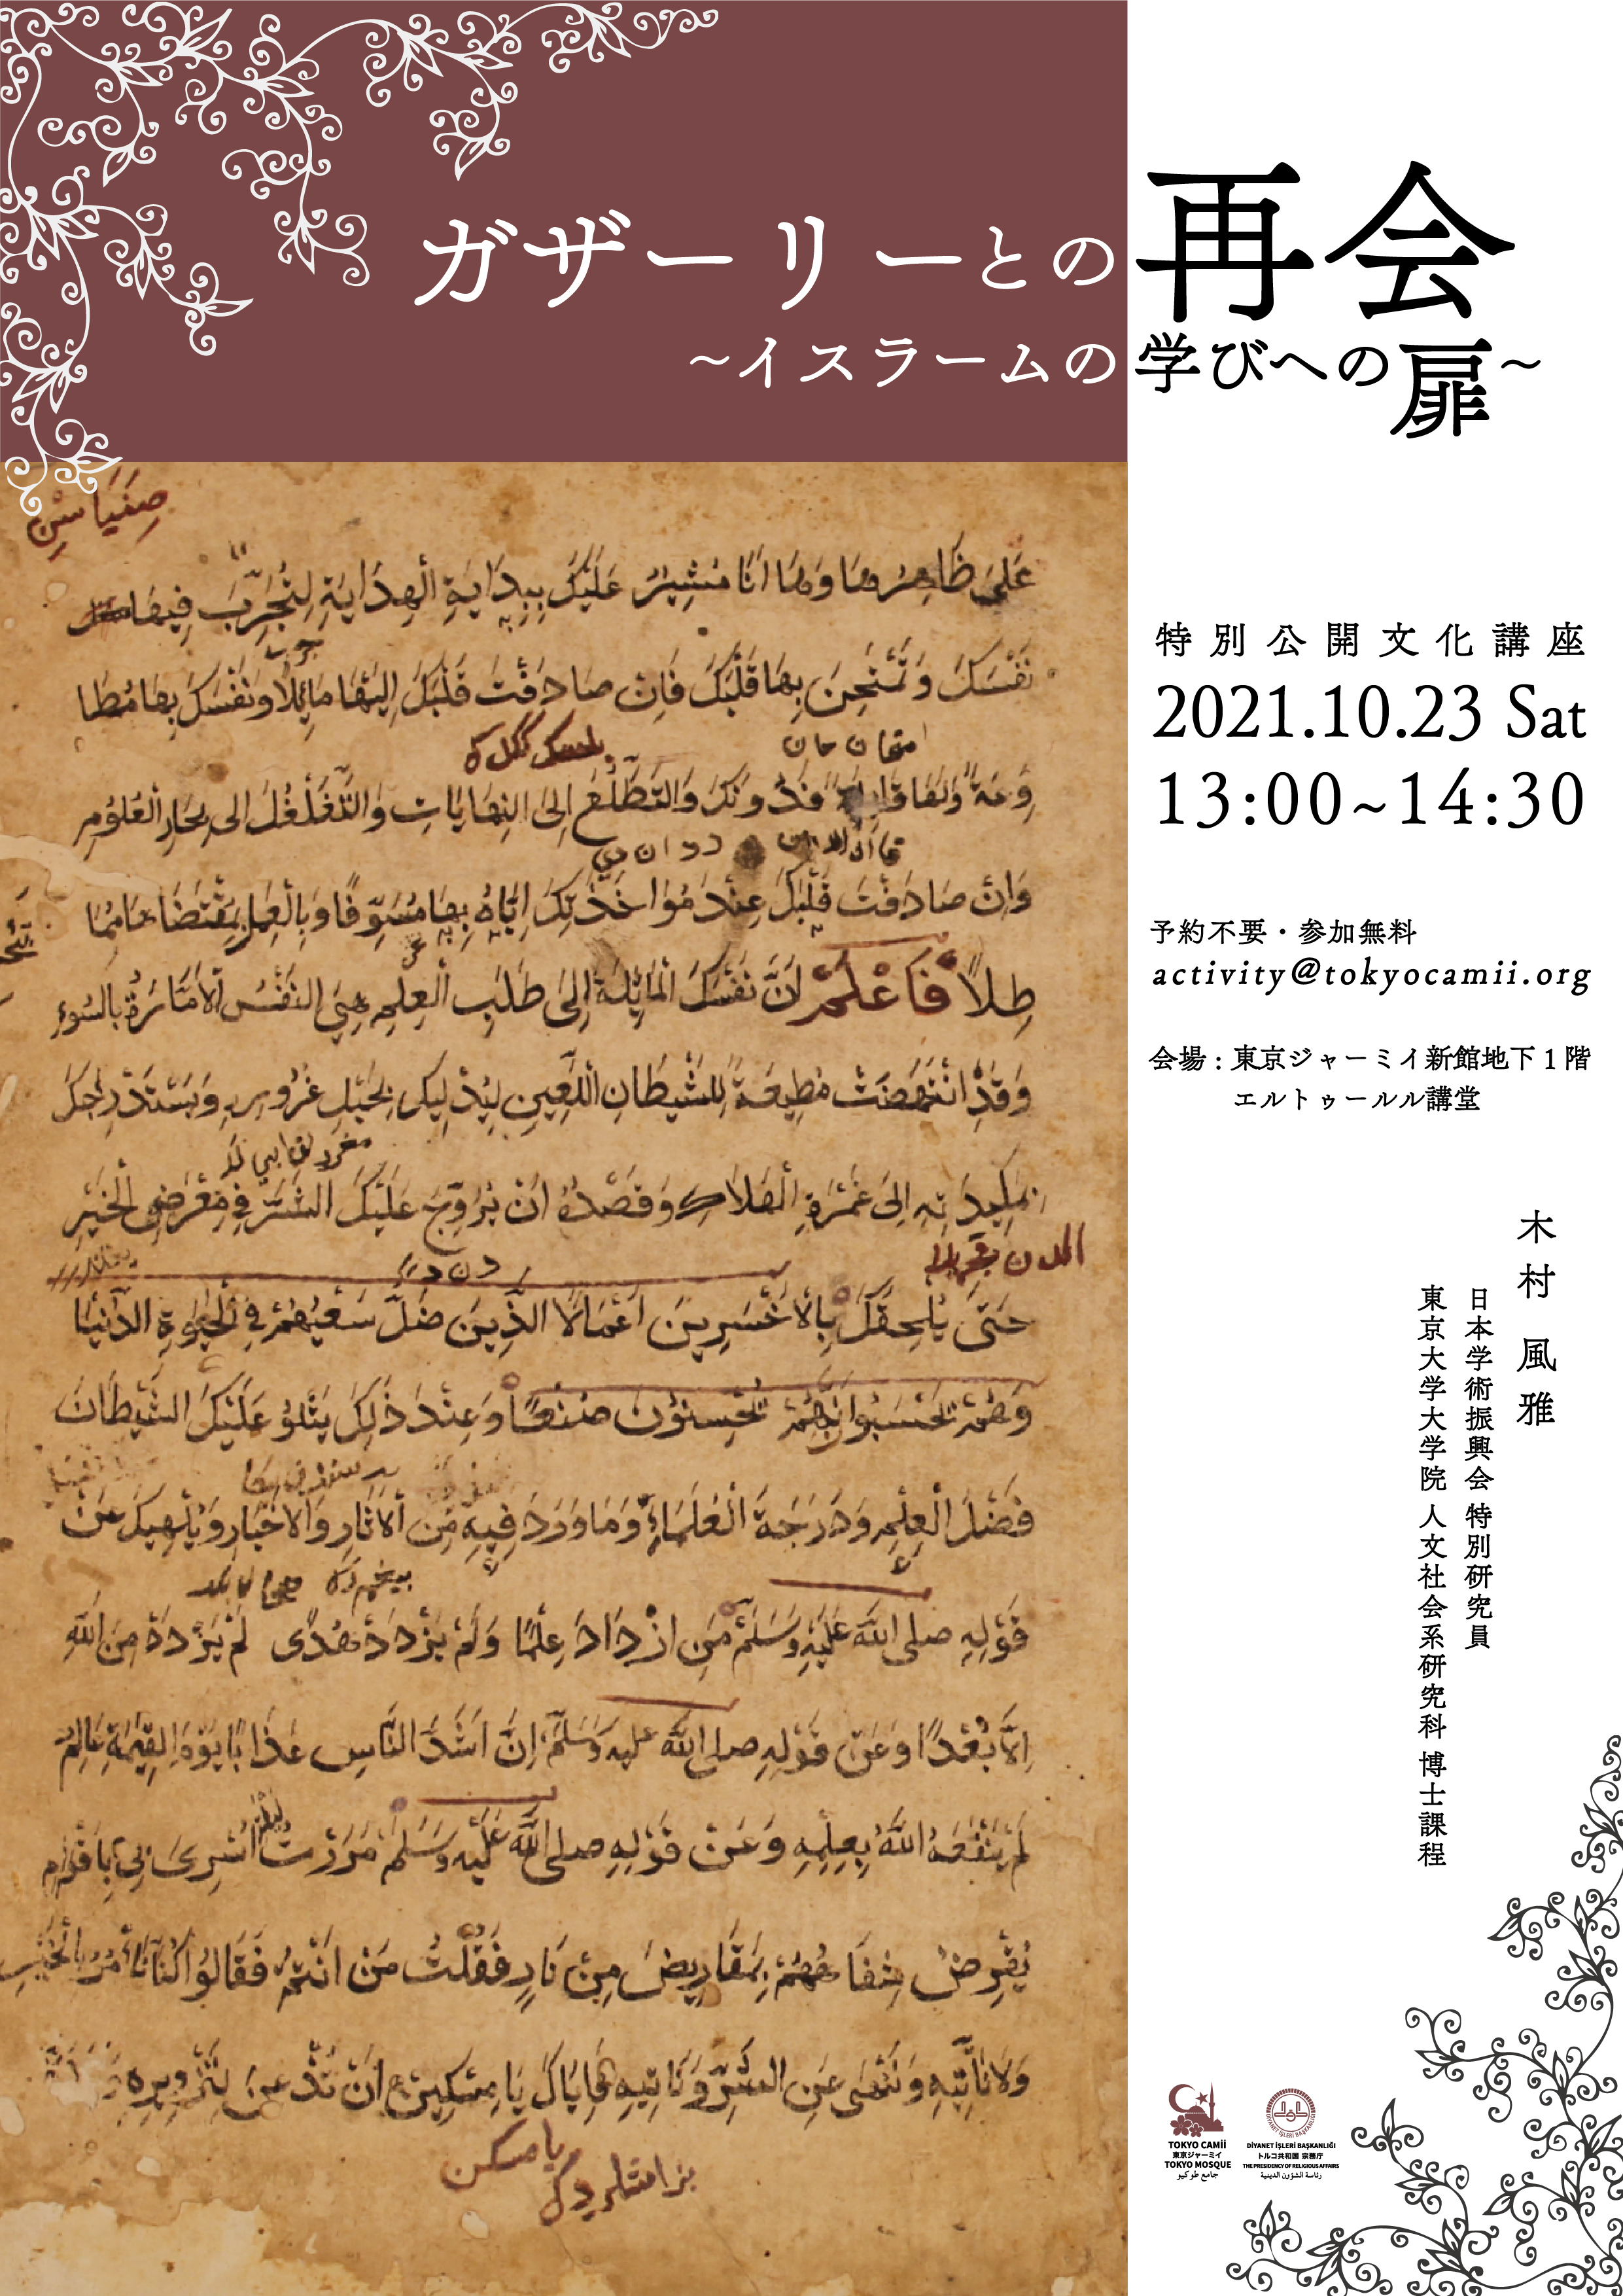 ガザーリーとの再会
～イスラームの学びへの扉～
علي ظاهرها وها انا مشير عليك ببداية الهداية لتجرب فيها
نفسك وتمتحن بها قلبك فان صادفت قلبك اليها مائلا ونفسك بها مطا
وعة فدونك والتطلع الى النهايات والتغلغل الى بحار العلوم
وان صادفت قلبك عند مواخذتك اياه بها مسوفا وبالعمل بمقتضاها مما
طلا فاعلم ان نفسك المائلة إلى طلب العلم هي النفس الامارة بالسوء
وقد انتهضت مطيعة للشيطان اللعين ليدليك بحبل غروره ويستدرجك
بمكيدته الى غمرة الهلاك وقصده ان يروج عليك الشر في معرض الخير
حتى يلحقك بالاخسرين اعمالا الذين ضل سعيهم في الحيوة الدنيا
وهم يحسبون انهم يحسنون صنعا وعند ذلك يتلو عليك الشيطان
فضل العلم ودرجة العلماء وما ورد فيه من الاثار والاخبار ويلهيك عن
قوله صلى الله عليه وسلم من ازداد علما ولم يزدد هدى لم يزدد من الله
الا بعدا وعن قوله صلى الله عليه وسلم ان اشد الناس عذابا يوم القيمة عالم
لم ينفعه الله بعلمه وعن قوله صلى الله عليه وسلم مررت ليلة اسرى بي باقوام
تقرض شفاههم بمقاريض من نار فقلت من انتم فقالوا كنا نأمر بالخير
ولا نأتيه وننهى عن الشر وناتيه فاياك يا مسكين ان تذعن لتزويره
特別公開文化講座
2021.10.23 Sat
13:00~14:30
予約不要・参加無料
activity@tokyocamii.org
会場：東京ジャーミイ新館地下１階
エルトゥールル講堂
木村 風雅
日本学術振興会 特別研究員
東京大学大学院 人文社会系研究科 博士課程
TOKYO CAMİİ
東京ジャーミイ
TOKYO MOSQUE
جامع طوكيو
DİYANET İŞLERİ BAŞKANLIĞI
トルコ共和国 宗務庁
THE PRESIDENCY OF RELIGIOUS AFFAIRS
رئاسة الشؤون الدينية